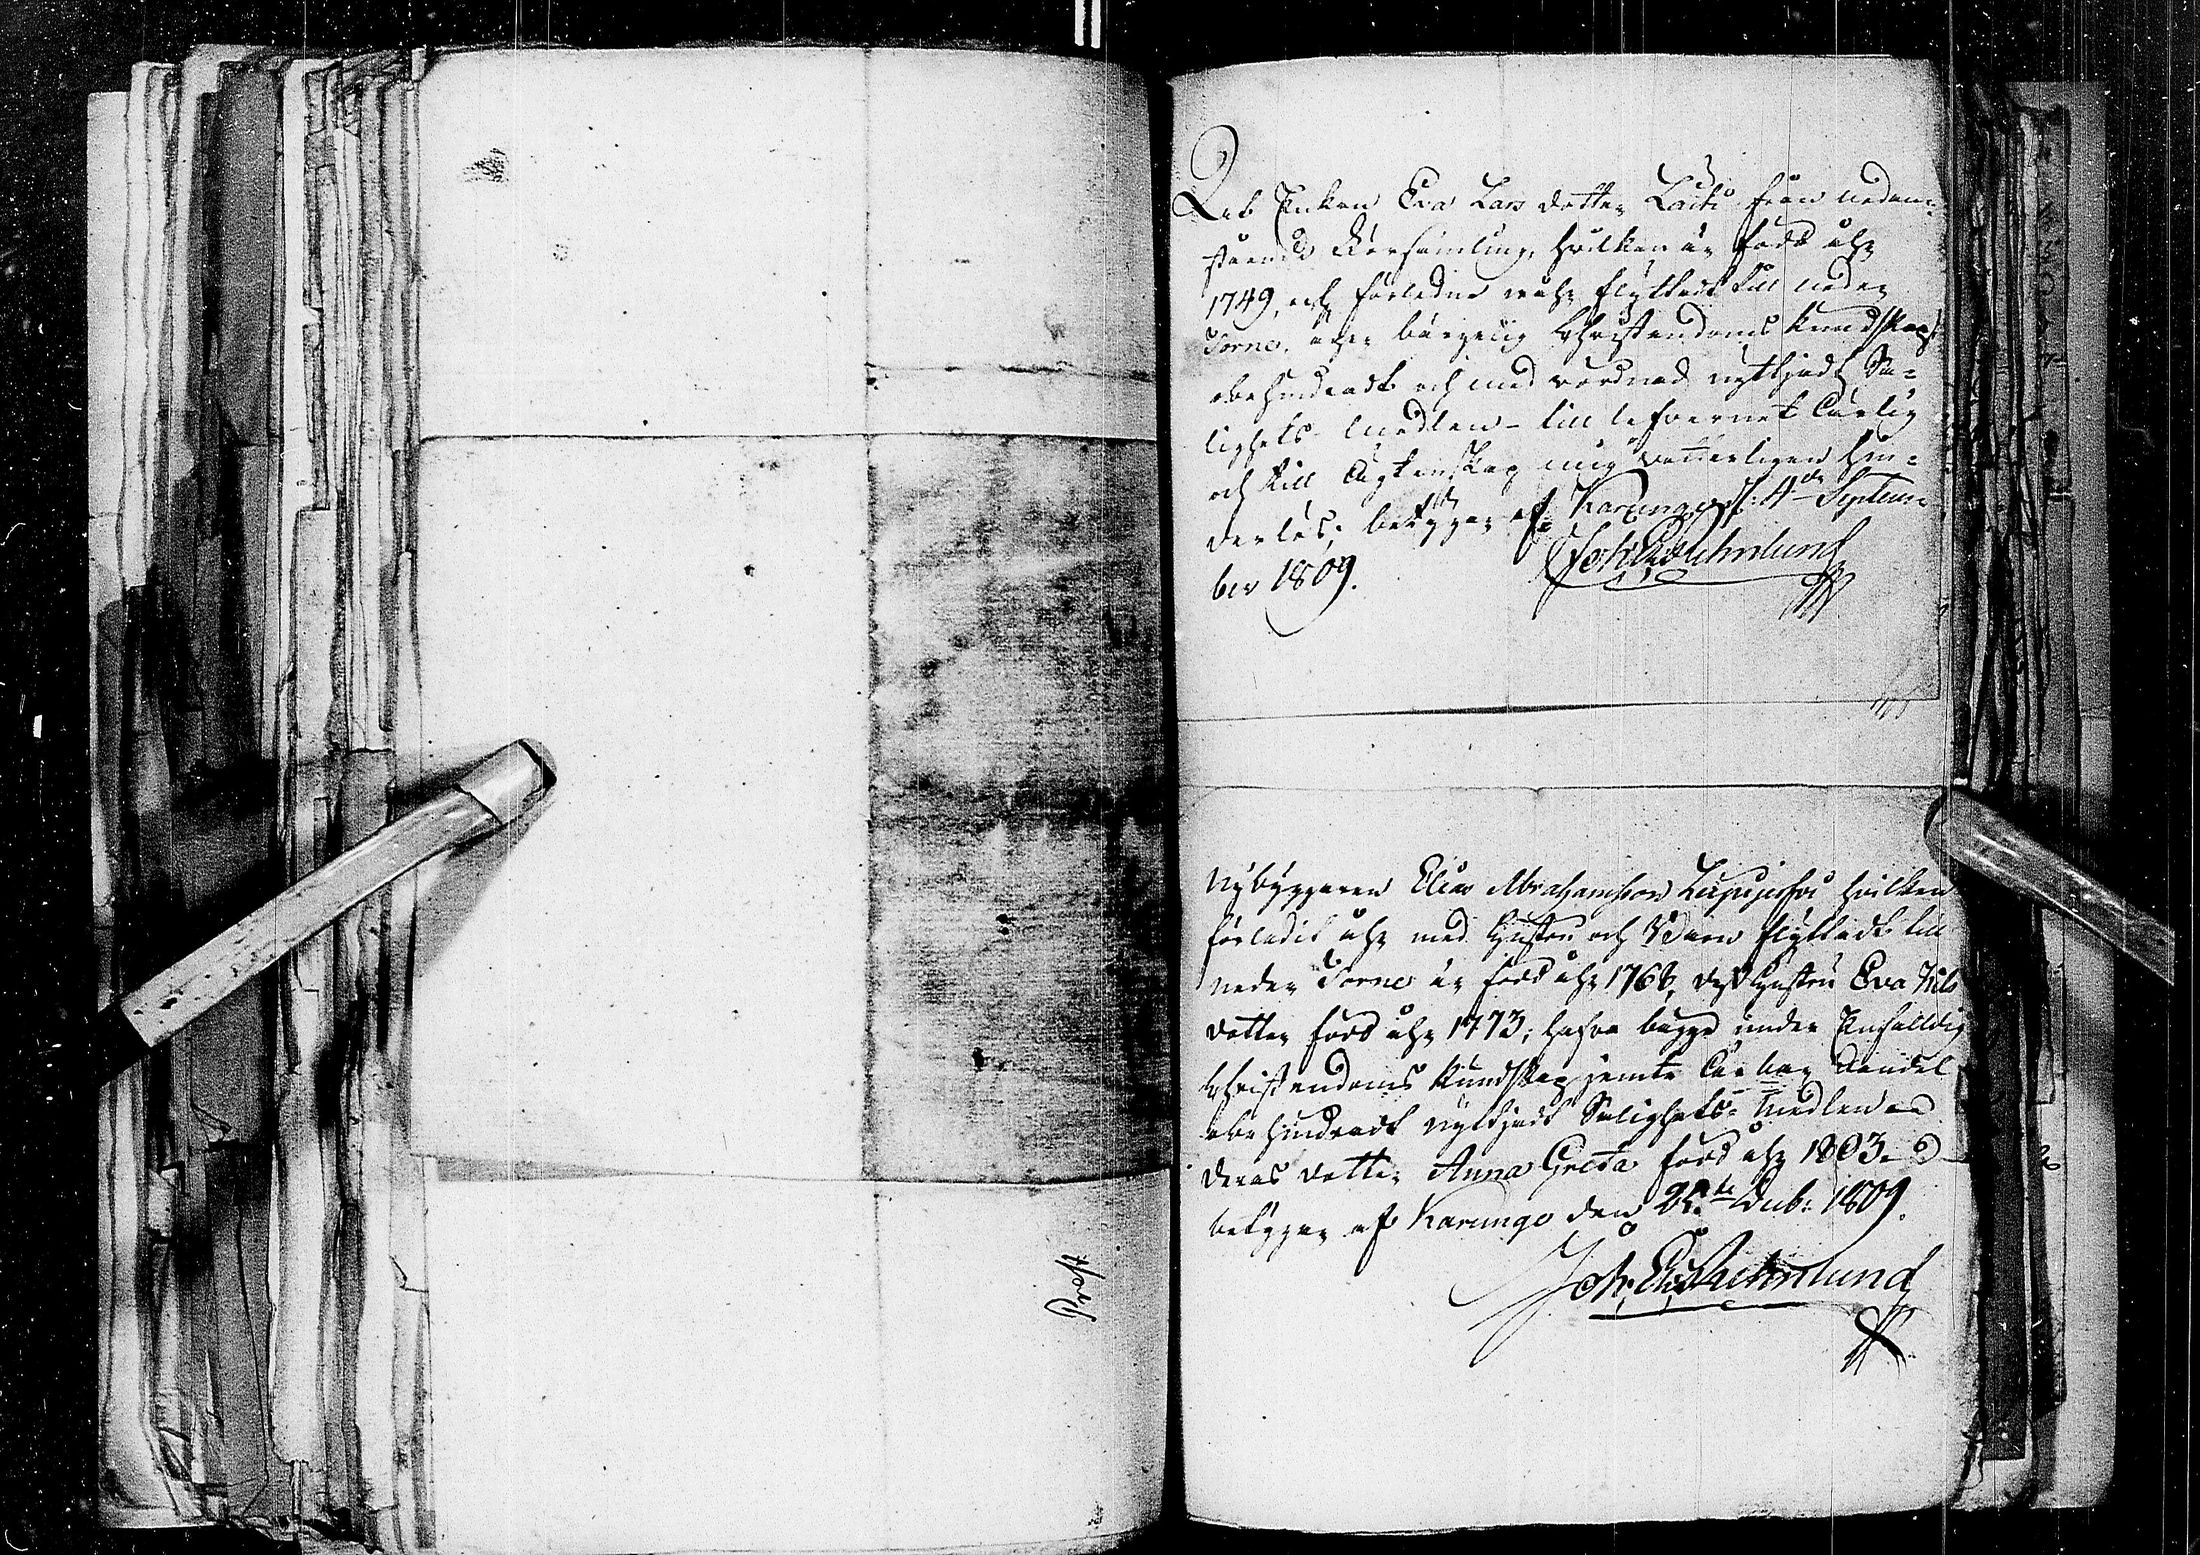 Att Enkan Eva Lars dotter Laiti från nedan-
stående Församling, hvilken är född åhr
1749, och förledne åhr flyttadt till neder
Torneo, äger börgelig Christendoms Kundskap,
obehindradt och med vördnad nyttjadt Sa-
lighets-medlen – till lefvernet ärlig
och till Ägtenskap mig vetterligen hin-
derlös; betygar af Karungi d: 4de Septem-
ber 1809. Joh: Wilh: Ehmlund
Nybyggaren Elias Abrahamsson hvilken
förledit åhr med Hustru och Barn flyttadt till
neder Torneo är född åhr 1768, dess Hustru Eva Nils
dotter född åhr 1773; hafva bägge under Enfalldig
Christendoms Kundskap jemte ärbar vandel
obehindradt nyttjadt Salighets-medlen
deras dotter Anna Greta född åhr 1803
betygar af Karungi den 1809.